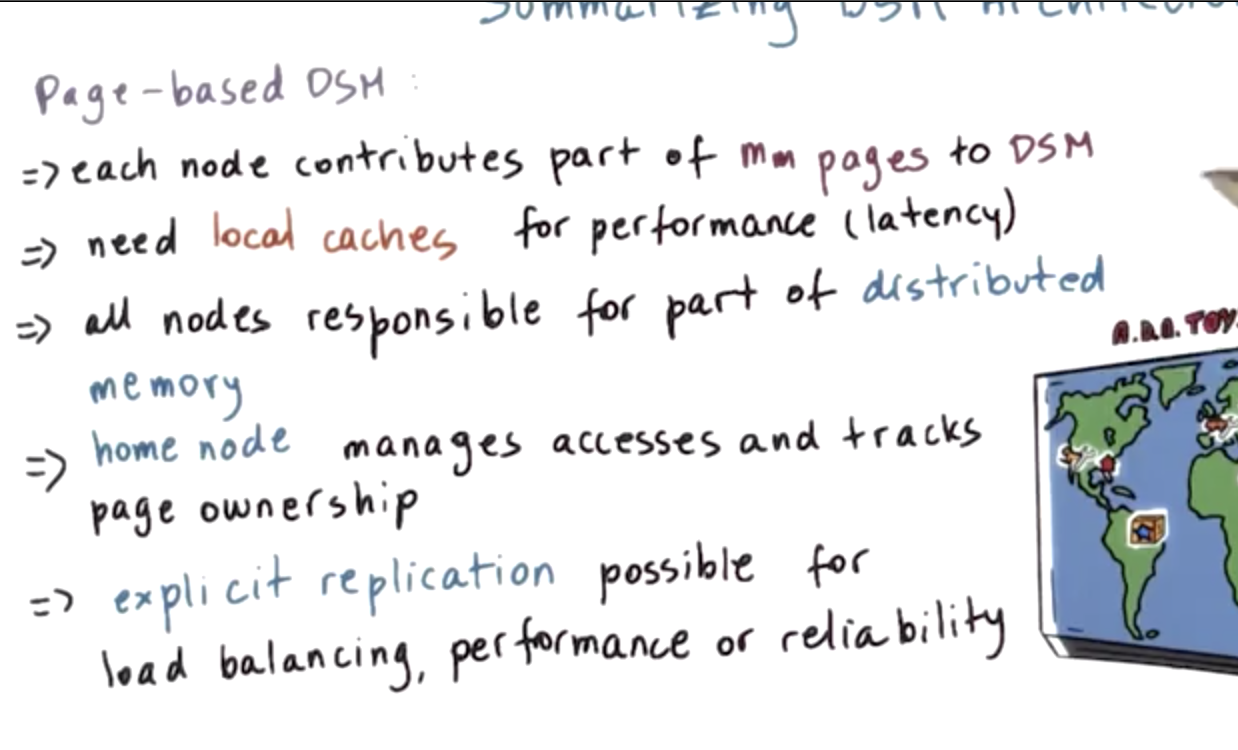 Summarizing DSM Architectur
Page-based DSM :
=> each node contributes part of mm pages to DSM
=> need local caches for performance (latency)
=> all nodes responsible for part of distributed
memory
=> home node manages accesses and tracks
page ownership
=> explicit replication possible for
load balancing, performance or reliability
A.D.A. TOY